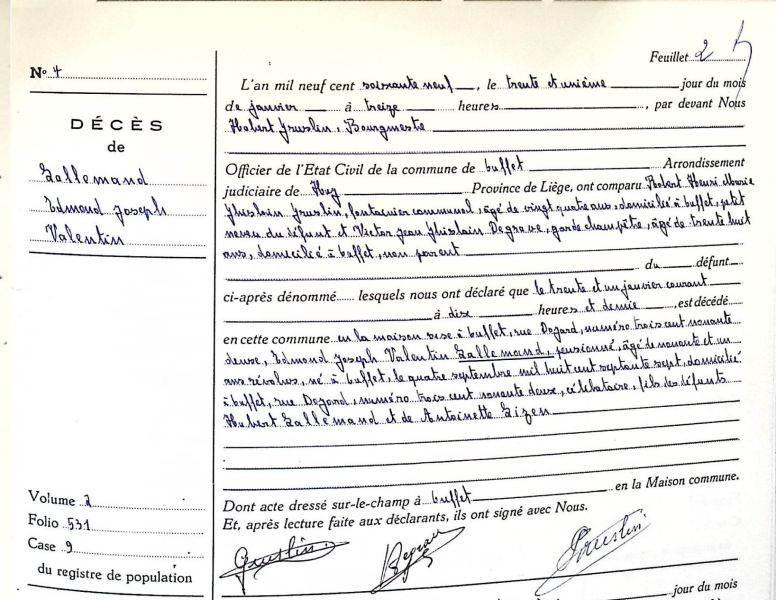 Feuillet 2
No 4
DÉCÈS
de
Lallemand
Edmond Joseph
Valentin
Volume 2
Folio 531
Case 9
du registre de population
L'an mil neuf cent soixante neuf, le trente et unième jour du mois
de janvier à treize heures, par devant Nous
Hobert Gruslin, Bourgmestre
Officier de l'Etat Civil de la commune de buffet Arrondissement
judiciaire de Huy Province de Liège, ont comparu Robert Henri Marie
Ghislain Gruslin, fontainier communal, âgé de vingt quatre ans, domicilié à buffet, petit
neveu du défunt et Victor Jean Ghislain Degrave, garde champêtre, âgé de trente huit
ans, domicilié à buffet, non parent
du défunt
ci-après dénommé lesquels nous ont déclaré que le trente et un janvier courant
à dix heures et demie, est décédé
en cette commune en la maison sise à buffet, rue Dogard, numéro trois cent nonante
deux, Edmond Joseph Valentin Lallemand, pensionné, âgé de nonante et un
ans révolus, né à buffet, le quatre septembre mil huit cent septante sept, domicilié
à buffet, rue Dogard, numéro trois cent nonante deux, célibataire, fils des défunts
Hubert Lallemand et de Antoinette Lizen
Dont acte dressé sur-le-champ à buffet en la Maison commune.
Et, après lecture faite aux déclarants, ils ont signé avec Nous.
Gruslin Gruslin
jour du mois